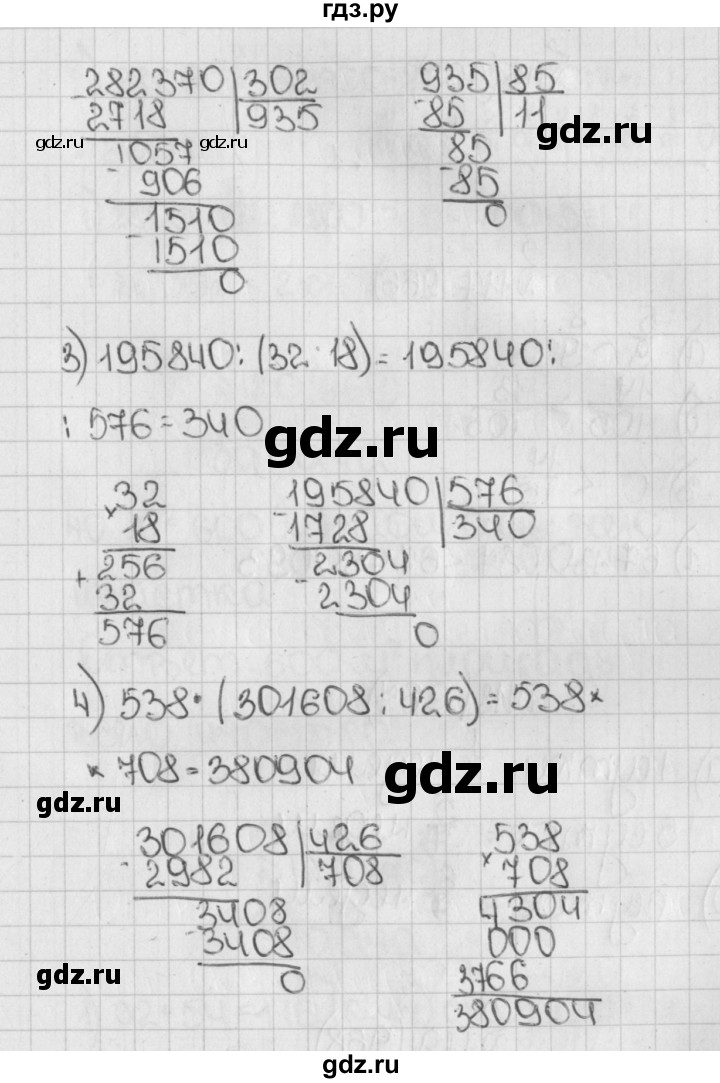 гдз.ру
282370 302
2718 935
gdz.ru gdz.ru
1057
906
1510
1510
0
935 85
85 11
gdz.ru
85
85
0
3) 195840:(32·18)=195840:
:576=340
gdz.ru
×32
18
+256
32
576
195840 576
1728 340
2304
2304
0
4) 538·(301608:426)=538×
×708=380904
gdz.ru
gdz.ru
301608 426
2982 708
3408
3408
0
×538
708
4304
000
3766
380904
gdz.ru
gdz.ru
gdz.ru